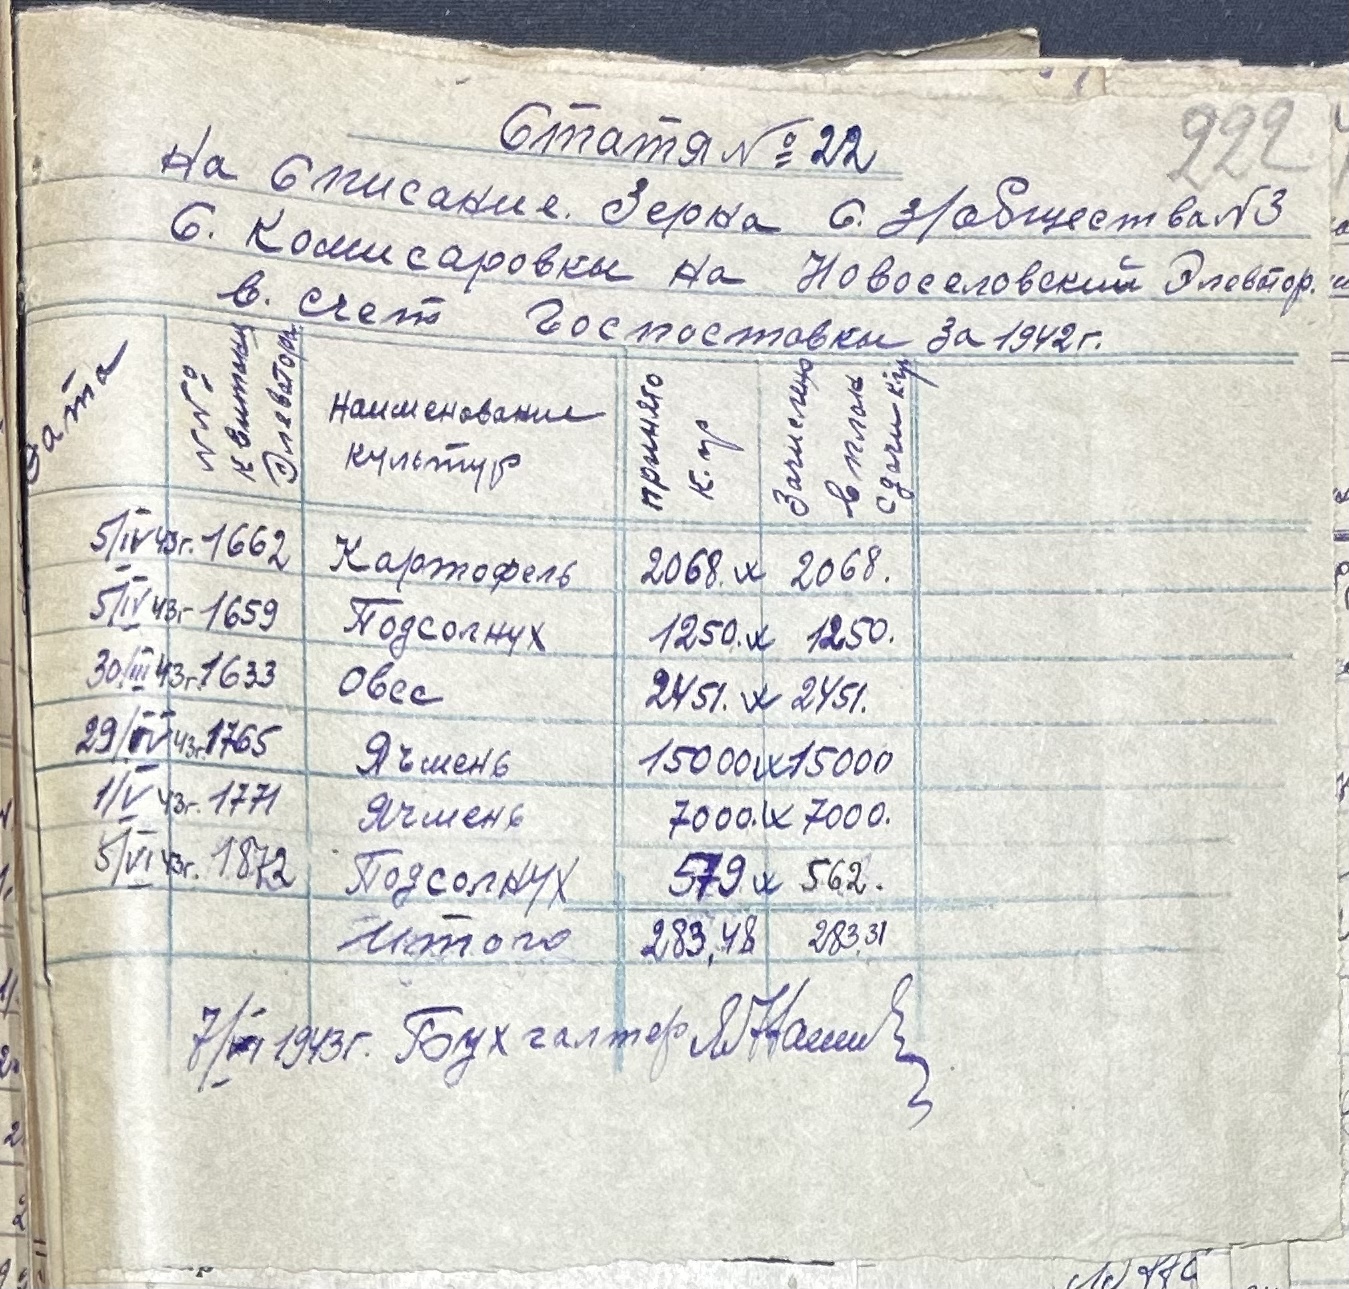 222
Статя № 22
На Списание. Зерна с. З/общества №3
с. Комисаровки на Новоселовский Элеватор.
в. счет Госпоставки за 1942г.
Дата №№ квитанц Элеватора Наименование культур принято к.гр Зачислено в план сдачи к.гр
5/IV 43г. 1662 Картофель 2068. х 2068.
5/IV 43г 1659 Подсолнух 1250. х 1250.
30/III 43г. 1633 Овес 2451. х 2451.
29/IV 43г. 1765 Ячмень 15000 х 15000
1/V 43г. 1771 Ячмень 7000. х 7000.
5/VI 43г. 1872 Подсолнух 579 х 562.
Итого 283,48 283,31
1943г. Бухгалтер